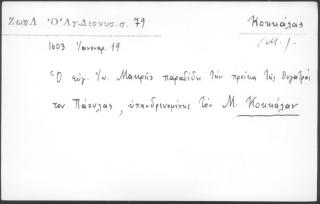 Ζωπλ Ὁ Ἅγ. Διονυσ. σ. 79 Κοκκάλας
(Μ.)
1603 Ἰανουαρ. 19
Ὁ εὐγ. Ἰω. Μακρῆς παραδίδει τὴν προῖκα τῆς θυγατρός
του Παόυλας, ὑπανδρευομένης τὸν Μ. Κοκκάλαν